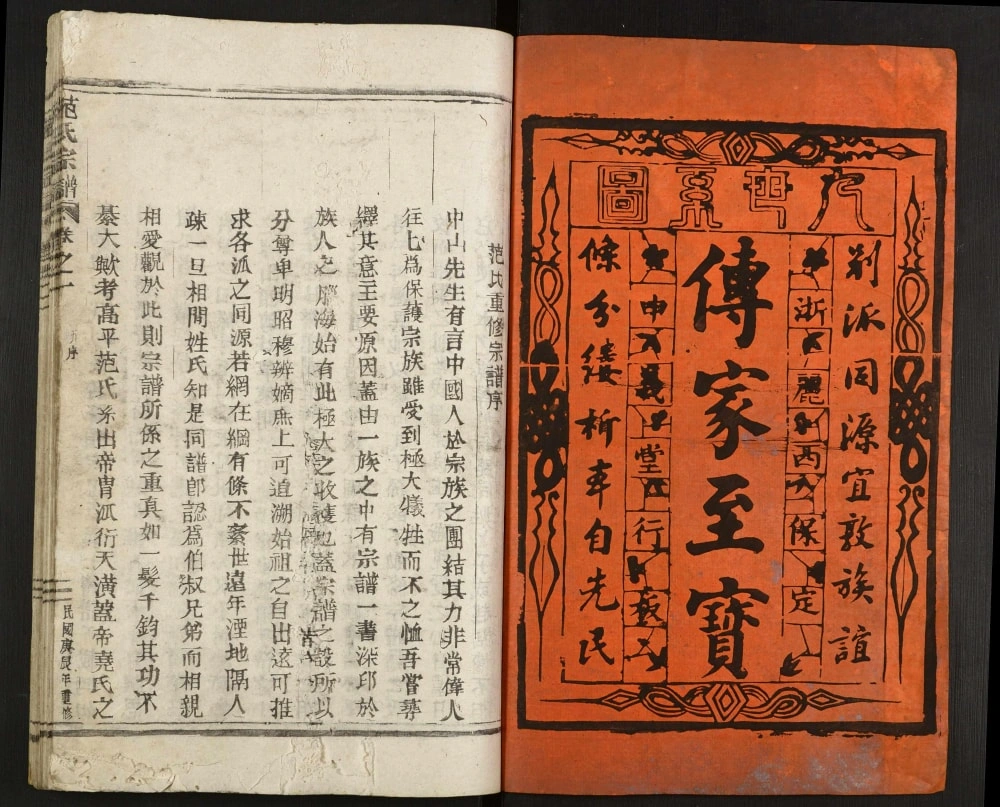 九世系圖
別派同源宜敦族誼
浙麗西保定
傳家至寶
申義堂行
條分縷析率自先民
范氏重修宗譜序
中山先生有言中國人於宗族之團結其力非常偉人
往七爲保護宗族雖受到極大犧牲而不之恤吾嘗尋
繹其意主要原因蓋由一族之中有宗譜一書深印於
族人之腦海始有此極大之收獲也蓋宗譜之設所以
分尊卑明昭穆辨嫡庶上可追溯始祖之自出遠可推
求各派之同源若網在綱有條不紊世遠年湮地隔人
疎一旦相聞姓氏知是同譜卽認爲伯叔兄弟而相親
相愛觀於此則宗譜所係之重真如一髮千鈞其功不
綦大歟考高平范氏系出帝胄派衍天潢蓋帝堯氏之
范氏宗譜 卷之一
序
民國庚辰年重修